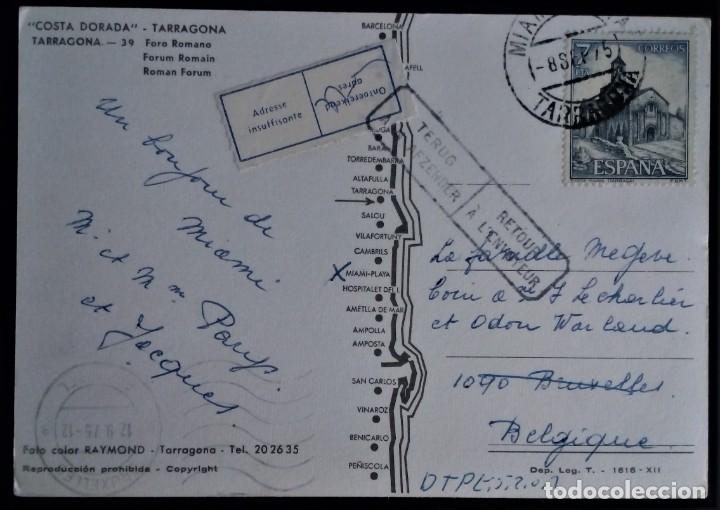 "COSTA DORADA" - TARRAGONA
TARRAGONA — 39 Foro Romano
Forum Romain
Roman Forum
Un bonjour de
Miami
M. et Mme
et Jacques.
Adresse
insuffisante
Ontoereikend
adres
TERUG
AFZENDER
RETOUR
À L'ENVOYEUR
BARCELONA
TORREDEMBARRA
ALTAFULLA
TARRAGONA
SALOU
VILAFORTUNY
CAMBRILS
X MIAMI-PLAYA
HOSPITALET DEL I.
AMETLLA DE MAR
AMPOLLA
AMPOSTA
SAN CARLOS
VINAROZ
BENICARLO
PEÑISCOLA
MIAMI
-8 SEP 75
TARRAGONA
7
PTA
CORREOS
ESPAÑA
La famille
Coin
et Odon Warland.
1090 Bruxelles.
Belgique.
12-9-75-12
Foto color RAYMOND - Tarragona - Tel. 20 26 35
Reproducción prohibida - Copyright
Dep. Log. T. - 1616 - XII
todocoleccion.net